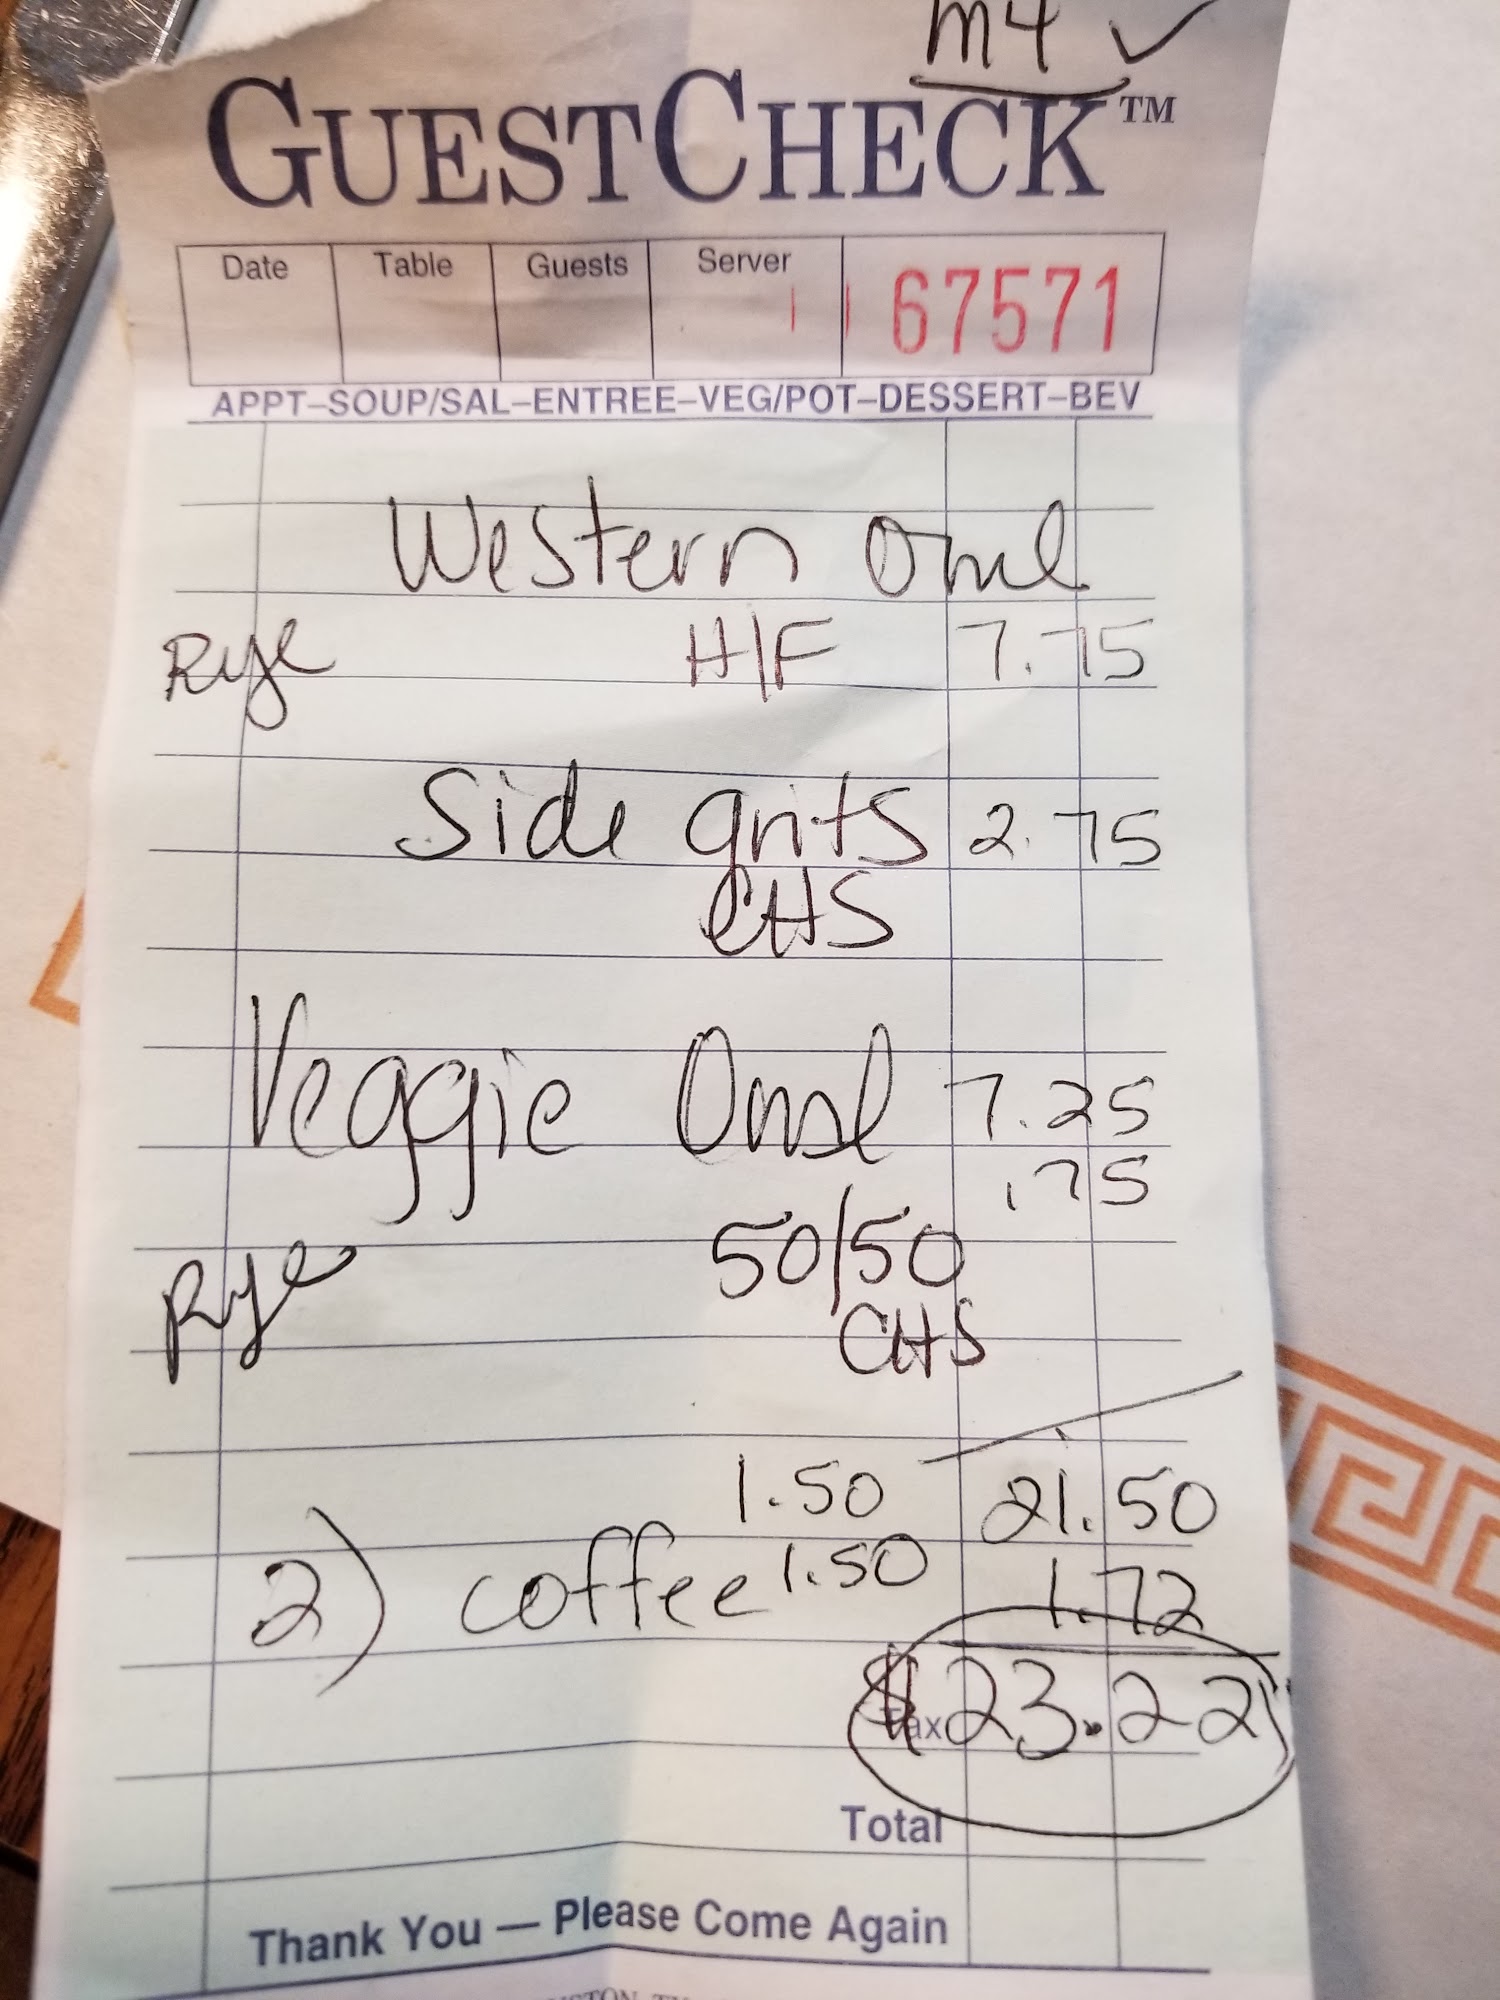 m4 ✓
GUESTCHECK™
Date Table Guests Server 67571
APPT–SOUP/SAL–ENTREE–VEG/POT–DESSERT–BEV
Western Omel
Rye H/F 7.75
Side grits 2.75
CHS
Veggie Omel 7.25
.75
Rye 50/50
CHS
1.50 21.50
2) coffee 1.50 1.72
$23.22
Tax
Total
Thank You — Please Come Again